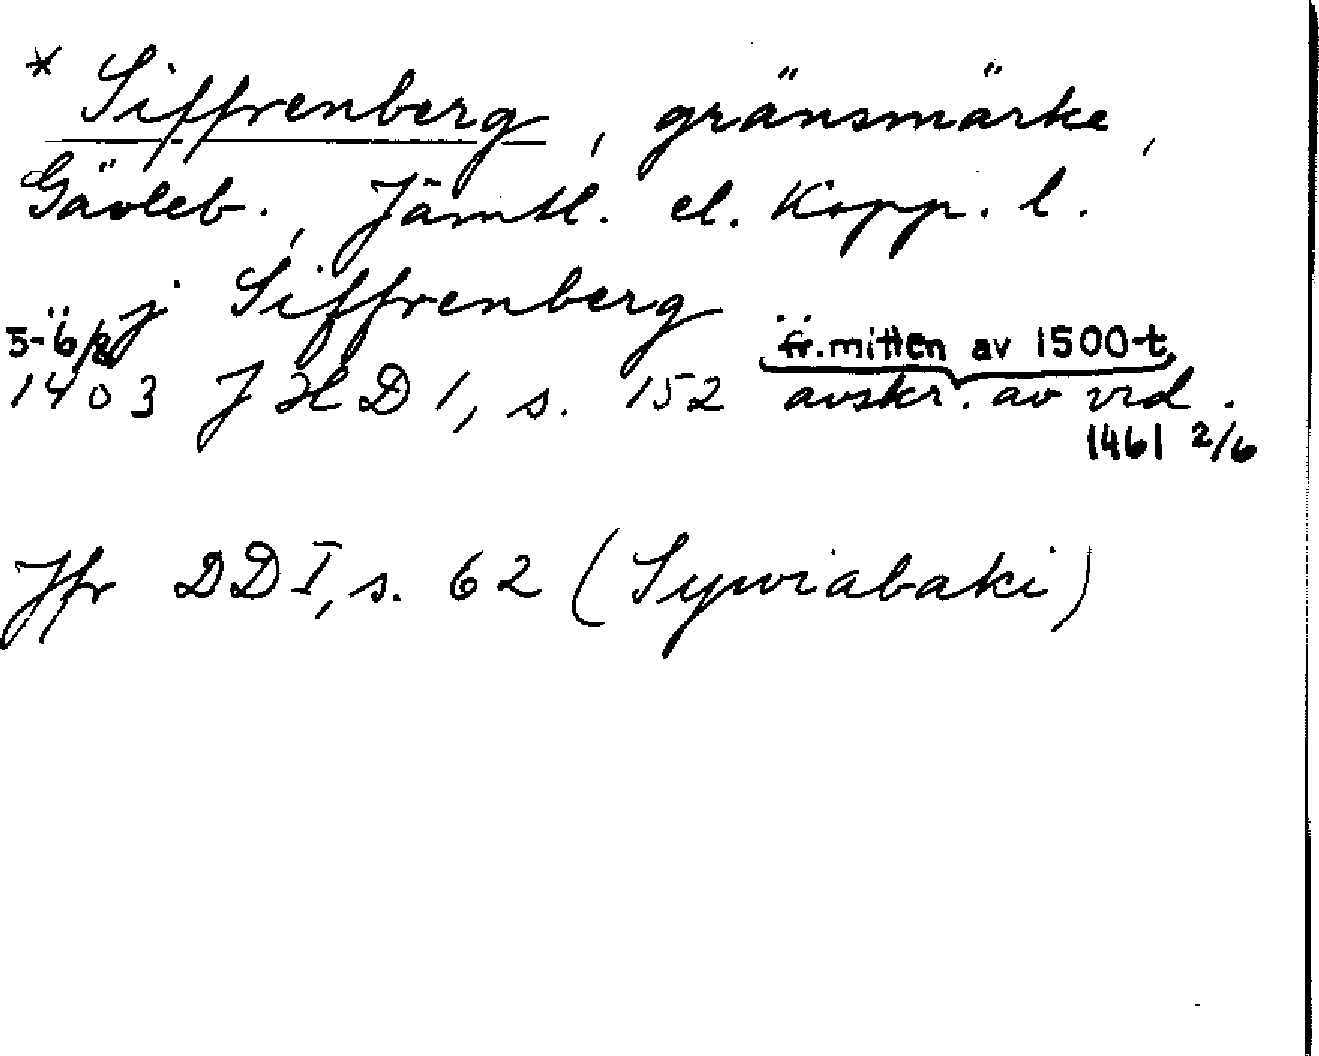 * Siffrenberg, gränsmärke,
Gävleb., Jämtl. el. Kopp. l.
j Siffrenberg
5-6/8 fr. mitten av 1500-t
1403 JHD 1, s. 152 avskr. av vid.
1461 2/6
Jfr DD I, s. 62 (Sywiabaki)